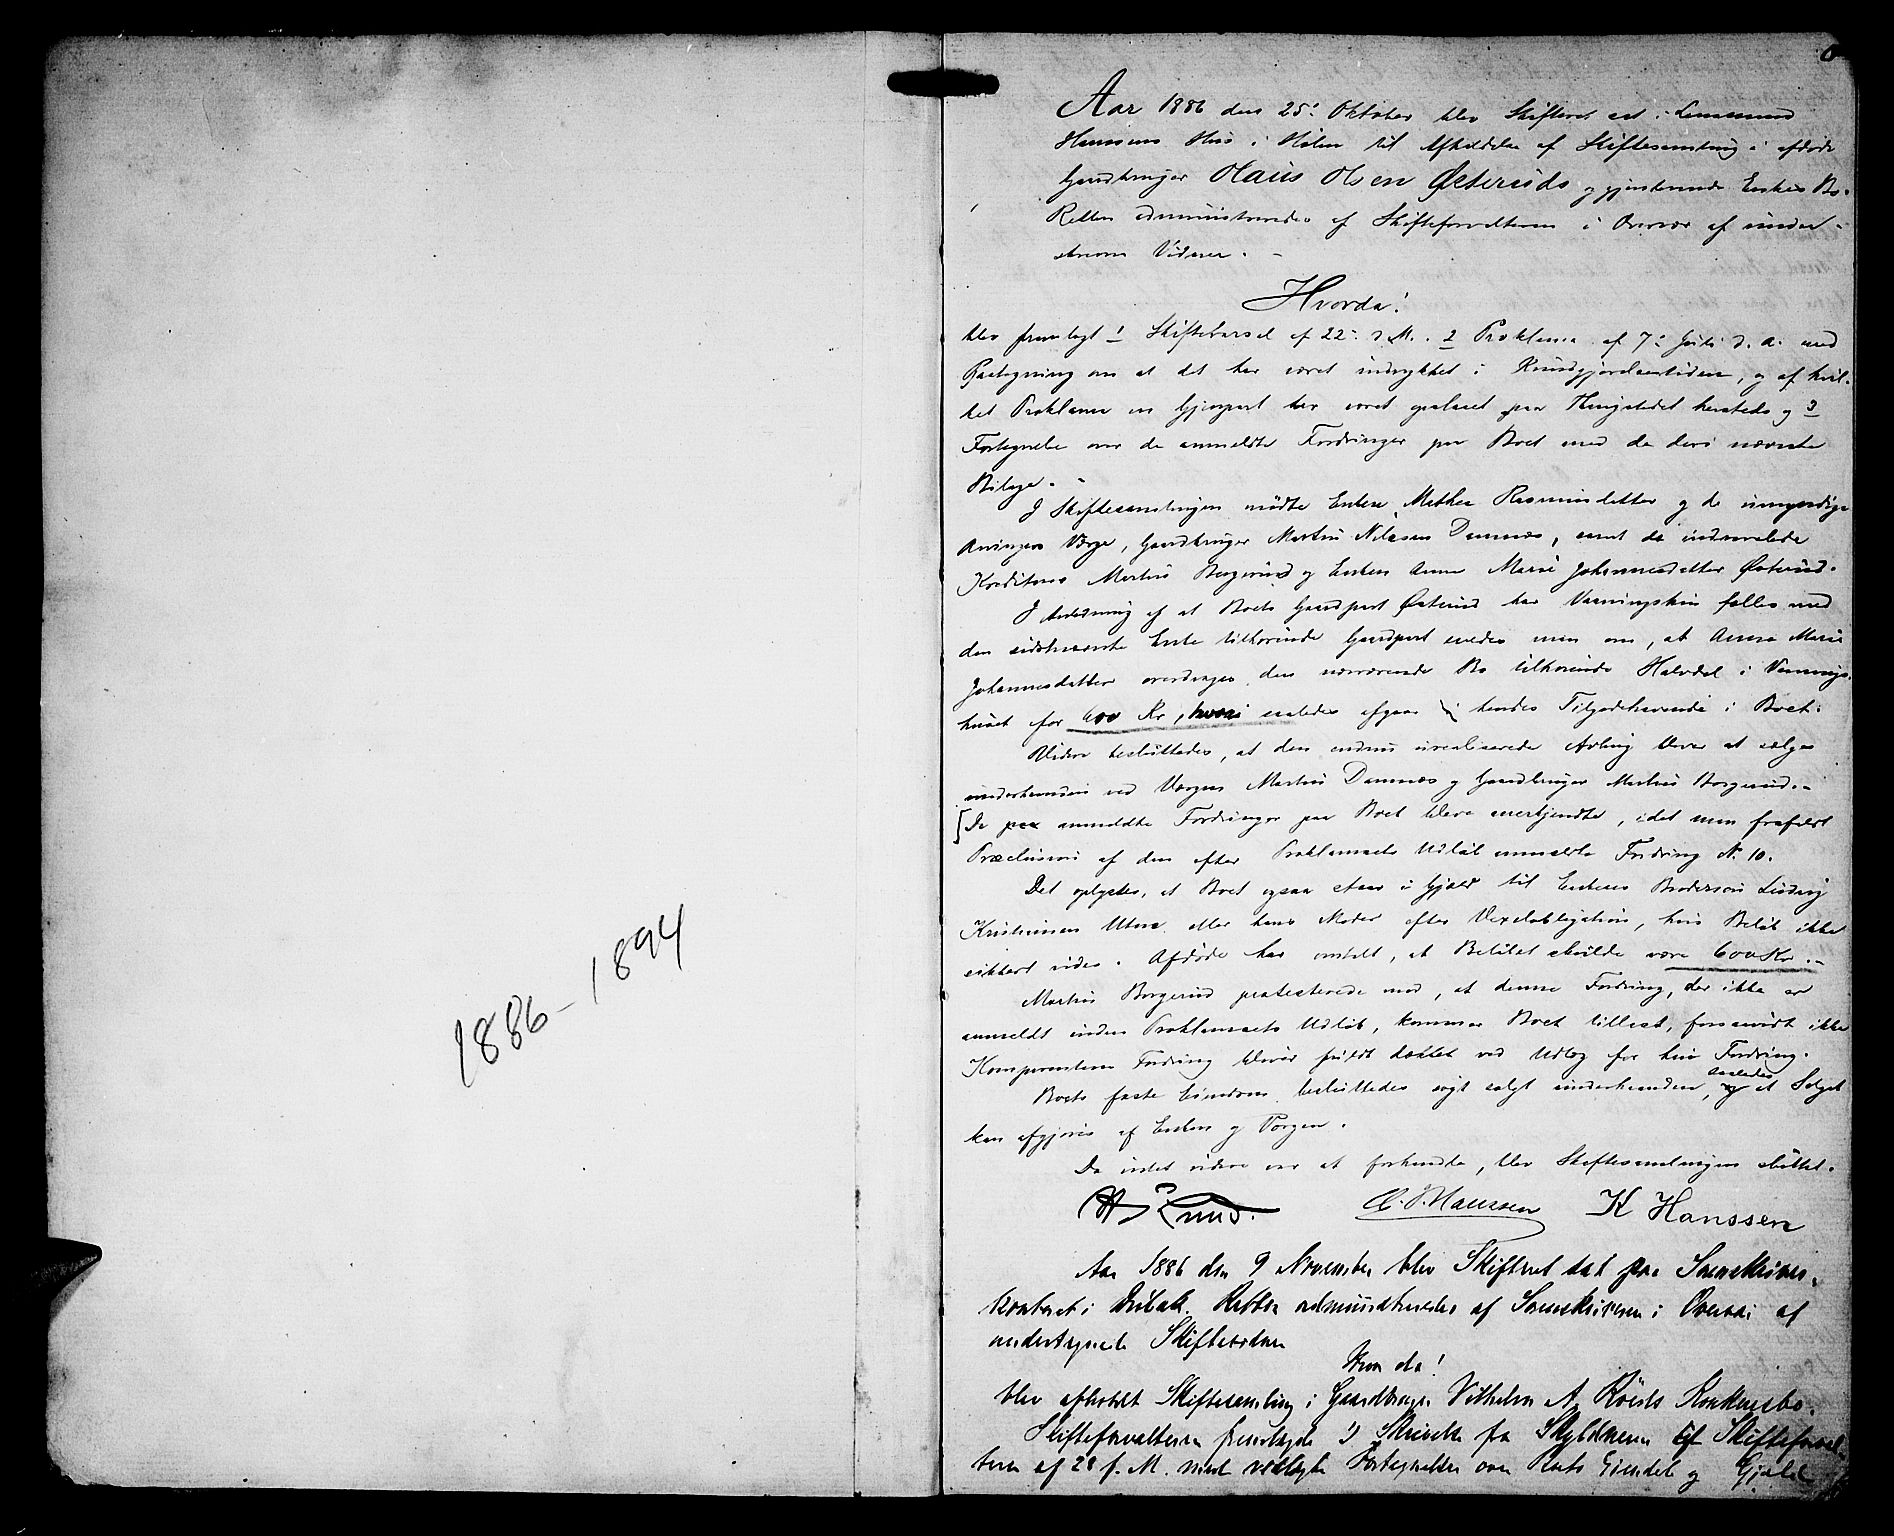 1886 - 1894
Aar 1886 den 25. Oktober blev Skifteret sat i Lensmand
Hansens Hus i Hølen til Afholdelse af Skiftesamling i afdøde
Gaardbruger Hans Olsen Østeruds og gjenlevende Enkes Bo.
Retten administreredes af Skifteforvalteren i Overvær af under-
skrevne Vidner. -
Hvorda!
blev fremlagt 1 Skiftevarsel af 22. d. M. 2 Proklama af 7. Juli d. A. med
Paategning om at det har været indrykket i Kundgjørelsestidende, og af hvil-
ket Proklama en Gjenpart har været opslaaet paa Thingstedet hersteds og 3
Fortegnelse over de anmeldte Fordringer paa Boet med de deri nævnte
Bilage. -
I Skiftesamlingen mødte Enken Mathea Rasmusdatter og de umyndige
Arvingers Værge, Gaardbruger Martin Nilssen Damnæs, samt de indvarslede
Kreditorer Martin Borgerud og Enken Anne Marie Johannesdatter Østerud.
I Anledning af at Boets Gaardpart Østerud har Vaaningshus fælles med
den sidstnævnte Enke tilhørende Gaardpart enedes man om, at Anne Marie
Johannesdatter overdrages den nærværende Bo tilhørende Halvdel i Vaanings-
huset for 600 Kr, hvori saaledes afgaar i hendes Tilgodehavende i Boet.
Videre besluttedes, at den endnu urealiserede Avling bliver at sælge
underhaanden ved Værgen Martin Damnæs og Gaardbruger Martin Borgerud. -
[De paa anmeldte Fordringer paa Boet bleve anerkjendte, idet man frafaldt
Præclusion af den efter Proklamaets Udløb anmeldte Fordring N. 10.
Det oplystes, at Boet ogsaa staar i Gjæld til Enkens Brodersøn Ludvig
Kristiansen eller hans Moder efter Vexelobligation, hvis Beløb ikke
sikkert vides. Afdøde har omtalt, at Beløbet skulde være 600 Kr. -
Martin Borgerud protesterede mod, at denne Fordring, der ikke er
anmeldt inden Proklamaets Udløb, kommer Boet tillast, forsaavidt ikke
Komparentens Fordring bliver fuldt dækket ved Udlæg for hans Fordring.
Boets faste Eiendom besluttedes søgt solgt underhaanden, og saaledes at Salget
kan afgjøres af Enken og Værgen.
Da intet videre var at forhandle, blev Skiftesamlingen sluttet.
K Hanssen
Aar 1886 den 9 November blev Skifteret sat paa Sorenskriver-
kontoret i Drøbak. Retten administreredes af Sorenskriveren i Overvær af
undertegnede Skiftevidner
Hvor da!
blev afholdt Skiftesamling i Gaardbruger Vilhelm A. Røeds Konkursbo.
Skifteforvalteren fremlagde 1) Skrivelse fra Skyldneren til Skifteforval-
teren af 28 f. M. med vedlagte Fortegnelse over Boets Eiendele og Gjæld